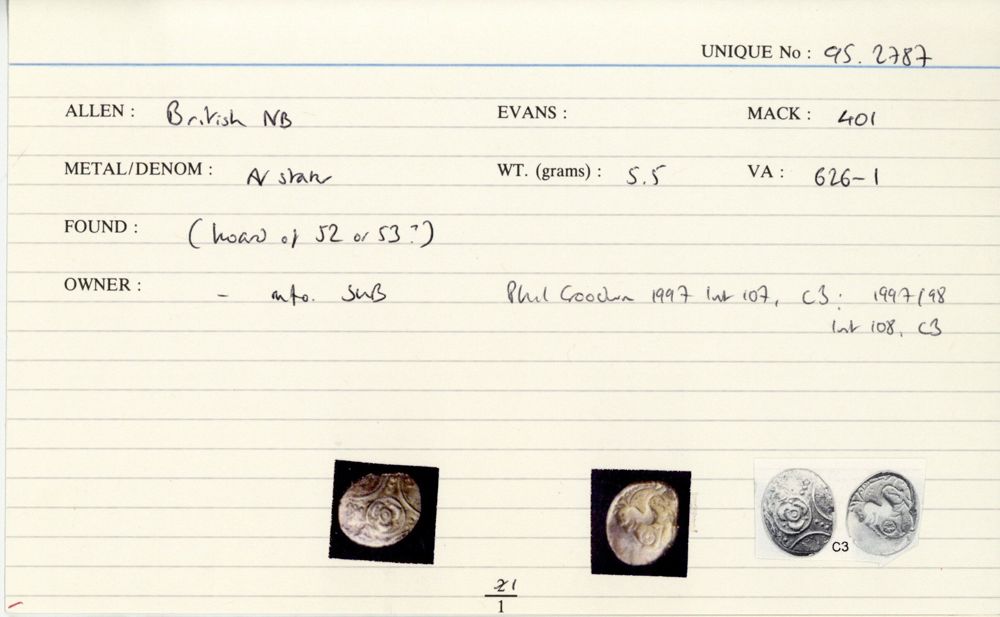 UNIQUE No : 95. 2787
ALLEN : British NB EVANS : MACK : 401
METAL/DENOM : AV stater WT. (grams) : 5.5 VA : 626-1
FOUND : (hoard of 52 or 53?)
OWNER : - info. SUB Phil Goodwin 1997 list 107, C3; 1997/98
list 108, C3
C3
21
1